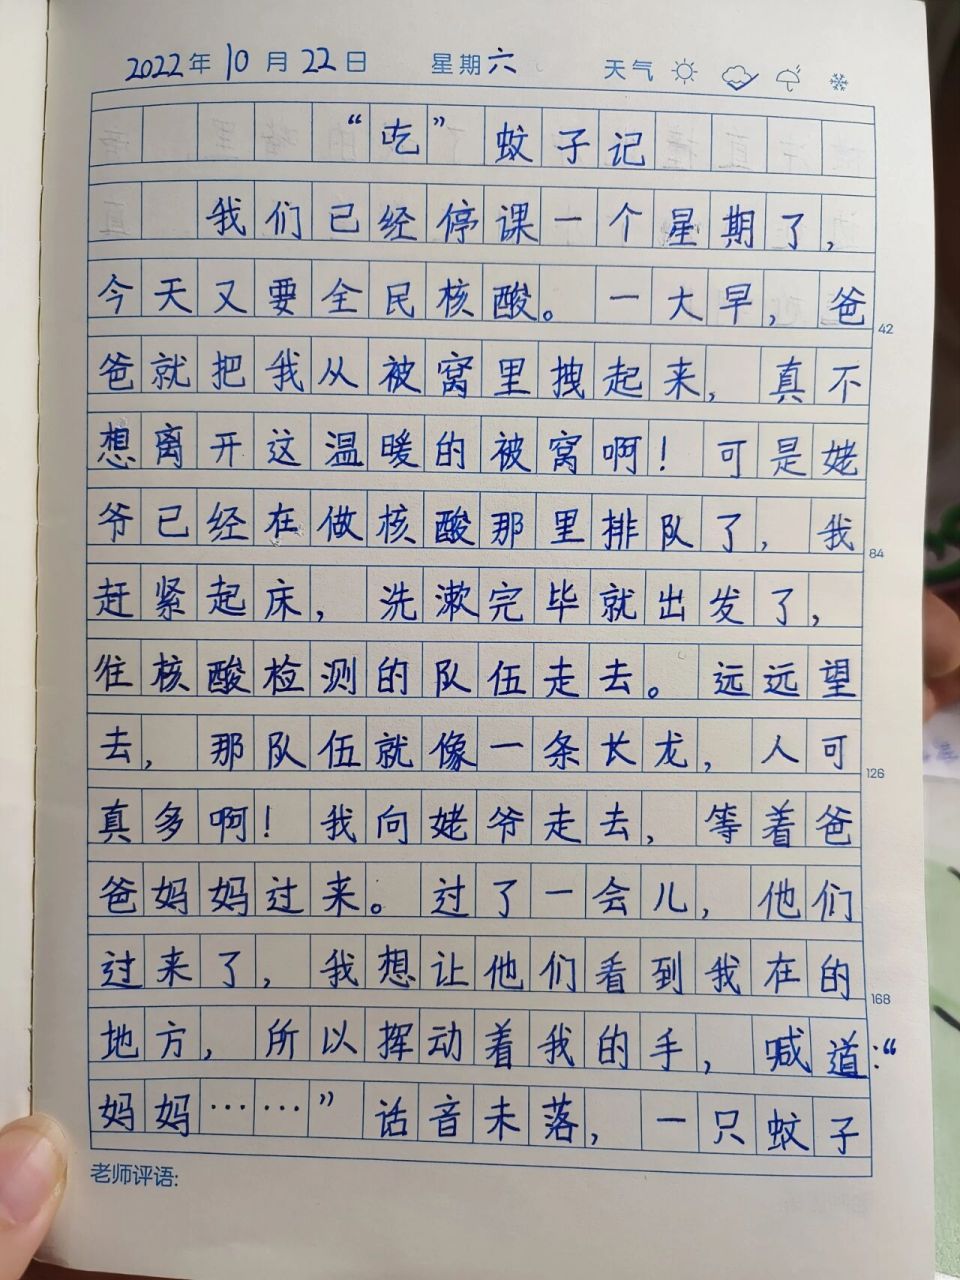 2022年 10月 22日 星期六 天气
“吃”蚊子记
我们已经停课一个星期了，
今天又要全民核酸。一大早，爸
42
爸就把我从被窝里拽起来，真不
想离开这温暖的被窝啊！可是姥
爷已经在做核酸那里排队了，我
84
赶紧起床，洗漱完毕就出发了，
往核酸检测的队伍走去。远远望
去，那队伍就像一条长龙，人可
126
真多啊！我向姥爷走去，等着爸
爸妈妈过来。过了一会儿，他们
过来了，我想让他们看到我在的
168
地方，所以挥动着我的手，喊道：“
妈妈……”话音未落，一只蚊子
老师评语: